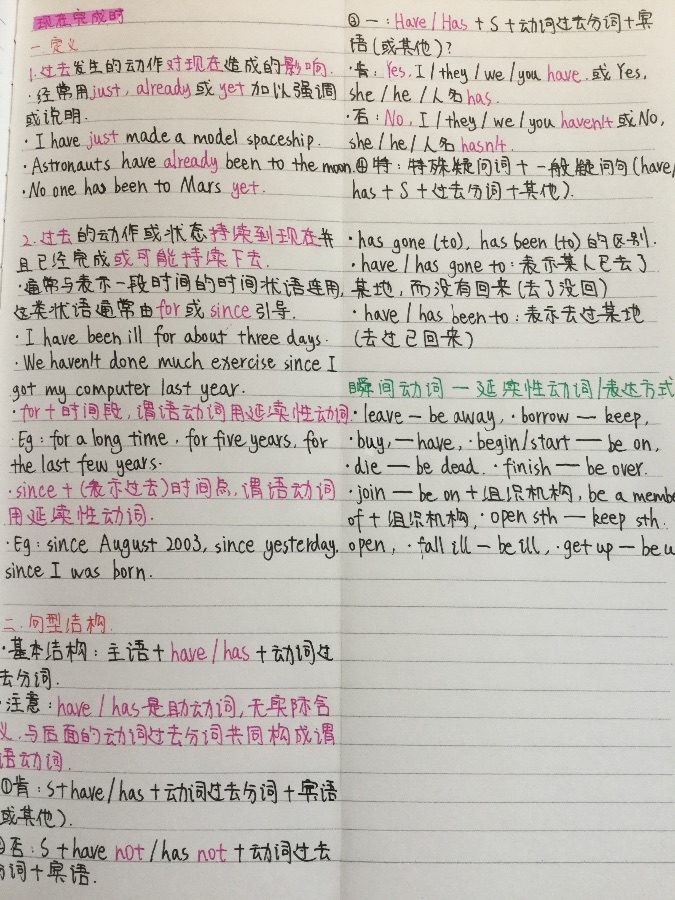 现在完成时
一.定义
1.过去发生的动作对现在造成的影响.
·经常用just, already或yet加以强调
或说明.
·I have just made a model spaceship.
·Astronauts have already been to the moon.
·No one has been to Mars yet.
2.过去的动作或状态持续到现在并
且已经完成或可能持续下去.
·通常与表示一段时间的时间状语连用,
这类状语通常由for或since引导.
·I have been ill for about three days.
·We haven't done much exercise since I
got my computer last year.
·for+时间段,谓语动词用延续性动词.
·Eg: for a long time, for five years, for
the last few years.
·since+(表示过去)时间点,谓语动词
用延续性动词.
·Eg: since August 2003, since yesterday,
since I was born.
二.句型结构.
·基本结构:主语+have/has+动词过
去分词.
·注意:have/has是助动词,无实际含
义.与后面的动词过去分词共同构成谓
语动词.
①肯:S+have/has+动词过去分词+宾语
或其他).
②否:S+have not/has not+动词过去
分词+宾语.
③一:Have/Has+S+动词过去分词+宾
语(或其他)?
·肯:Yes, I/they/we/you have.或Yes,
she/he/人名has.
·否:No, I/they/we/you haven't或No,
she/he/人名hasn't.
④特:特殊疑问词+一般疑问句(have/
has+S+过去分词+其他).
·has gone (to), has been (to)的区别.
·have/has gone to:表示某人已去了
某地,而没有回来(去了没回)
·have/has been to:表示去过某地
(去过已回来)
瞬间动词—延续性动词/表达方式
·leave—be away, ·borrow—keep,
·buy,—have, ·begin/start—be on,
·die—be dead, ·finish—be over.
·join—be on+组织机构, be a membe
of+组织机构, ·open sth—keep sth.
open, ·fall ill—be ill, ·get up—be u